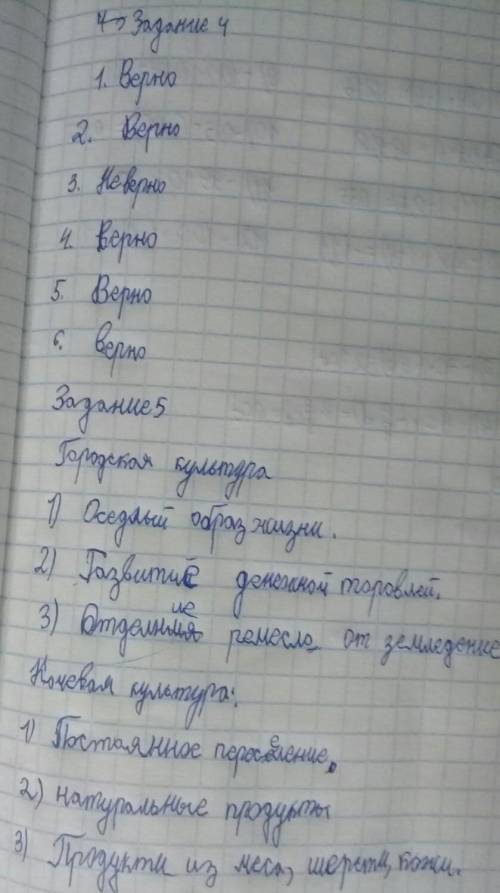 Задание 4
1. Верно
2. Верно
3. Неверно
4. Верно
5. Верно
6. верно
Задание 5
Городская культура
1) Оседлый образ жизни.
2) Газвитие денежной торовлей.
3) ремесло от земледение
Кочевая культура:
1) Постаянное пересоление.
2) натуральные продукты
3) Продукти из меса, шерсти, кожи.